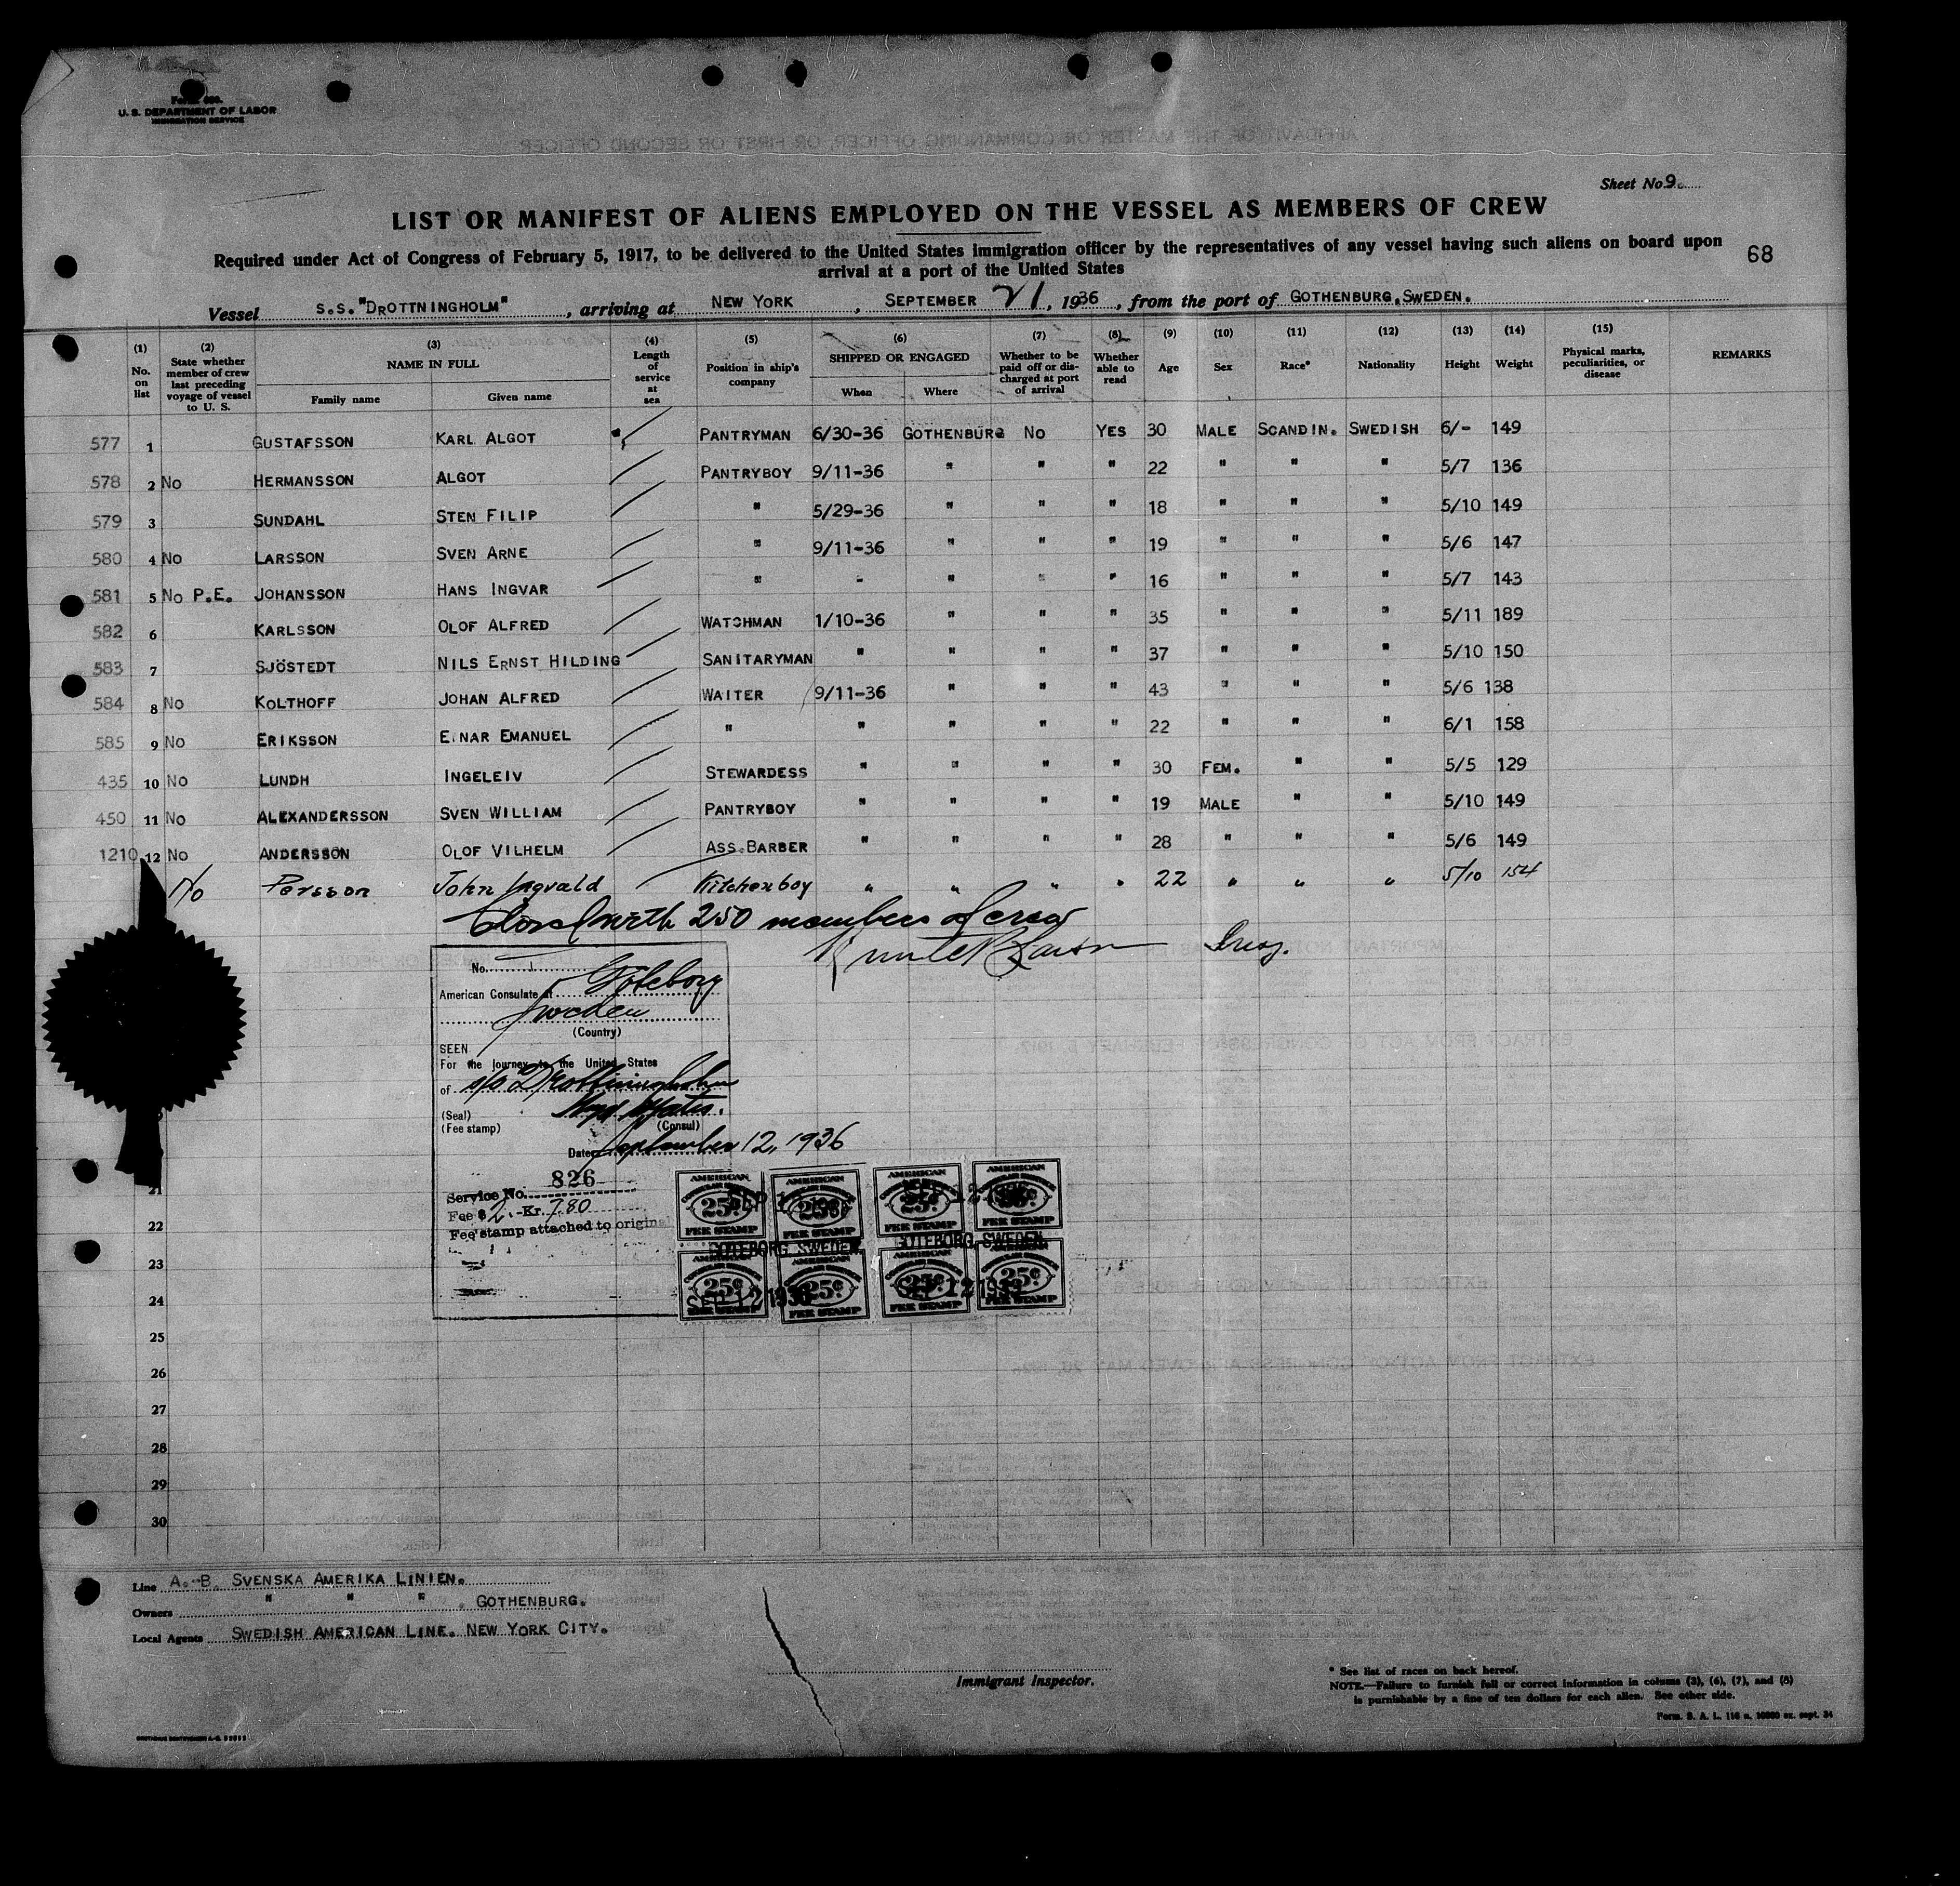 U. S. DEPARTMENT OF LABOR
IMMIGRATION SERVICE
Sheet No. 9
LIST OR MANIFEST OF ALIENS EMPLOYED ON THE VESSEL AS MEMBERS OF CREW
Required under Act of Congress of February 5, 1917, to be delivered to the United States immigration officer by the representatives of any vessel having such aliens on board upon
arrival at a port of the United States
68
Vessel S.S. "DROTTNINGHOLM", arriving at NEW YORK, SEPTEMBER 21, 1936, from the port of GOTHENBURG, SWEDEN.
(1) No. on list (2) State whether member of crew last preceding voyage of vessel to U. S. (3) NAME IN FULL Family name Given name (4) Length of service at sea (5) Position in ship's company (6) SHIPPED OR ENGAGED When Where (7) Whether to be paid off or discharged at port of arrival (8) Whether able to read (9) Age (10) Sex (11) Race* (12) Nationality (13) Height (14) Weight (15) Physical marks, peculiarities, or disease REMARKS
577 1 GUSTAFSSON KARL ALGOT PANTRYMAN 6/30-36 GOTHENBURG NO YES 30 MALE SCANDIN. SWEDISH 6/- 149
578 2 NO HERMANSSON ALGOT PANTRYBOY 9/11-36 " " " 22 " " " 5/7 136
579 3 SUNDAHL STEN FILIP " 5/29-36 " " " 18 " " " 5/10 149
580 4 NO LARSSON SVEN ARNE " 9/11-36 " " " 19 " " " 5/6 147
581 5 NO P.E. JOHANSSON HANS INGVAR " " " " " 16 " " " 5/7 143
582 6 KARLSSON OLOF ALFRED WATCHMAN 1/10-36 " " " 35 " " " 5/11 189
583 7 SJÖSTEDT NILS ERNST HILDING SANITARYMAN " " " " 37 " " " 5/10 150
584 8 NO KOLTHOFF JOHAN ALFRED WAITER 9/11-36 " " " 43 " " " 5/6 138
585 9 NO ERIKSSON EINAR EMANUEL " " " " " 22 " " " 6/1 158
435 10 NO LUNDH INGELEIV STEWARDESS " " " " 30 FEM. " " 5/5 129
450 11 NO ALEXANDERSSON SVEN WILLIAM PANTRYBOY " " " " 19 MALE " " 5/10 149
1210 12 NO ANDERSSON OLOF VILHELM ASS.BARBER " " " " 28 " " " 5/6 149
No Persson John Ingvald Kitchenboy " " " " 22 " " " 5/10 154
Closed with 250 members of crew
No.
American Consulate at Göteborg
Sweden
(Country)
SEEN
For the Journey to the United States
of s/s Drottningholm
(Seal)
(Consul)
(Fee stamp)
Date September 12, 1936
Service No. 826
Fee $ 2.- Kr. 7.80
Fee stamp attached to original
AMERICAN 25¢ FEE STAMP
GOTEBORG, SWEDEN. GOTEBORG, SWEDEN.
SEP 12 1936
21
22
23
24
25
26
27
28
29
30
Line A.-B. SVENSKA AMERIKA LINIEN.
Owners " " " , GOTHENBURG.
Local Agents SWEDISH AMERICAN LINE. NEW YORK CITY.
Immigrant Inspector.
* See list of races on back hereof.
NOTE.—Failure to furnish full or correct information in column (3), (6), (7), and (8)
is purnishable by a fine of ten dollars for each alien. See other side.